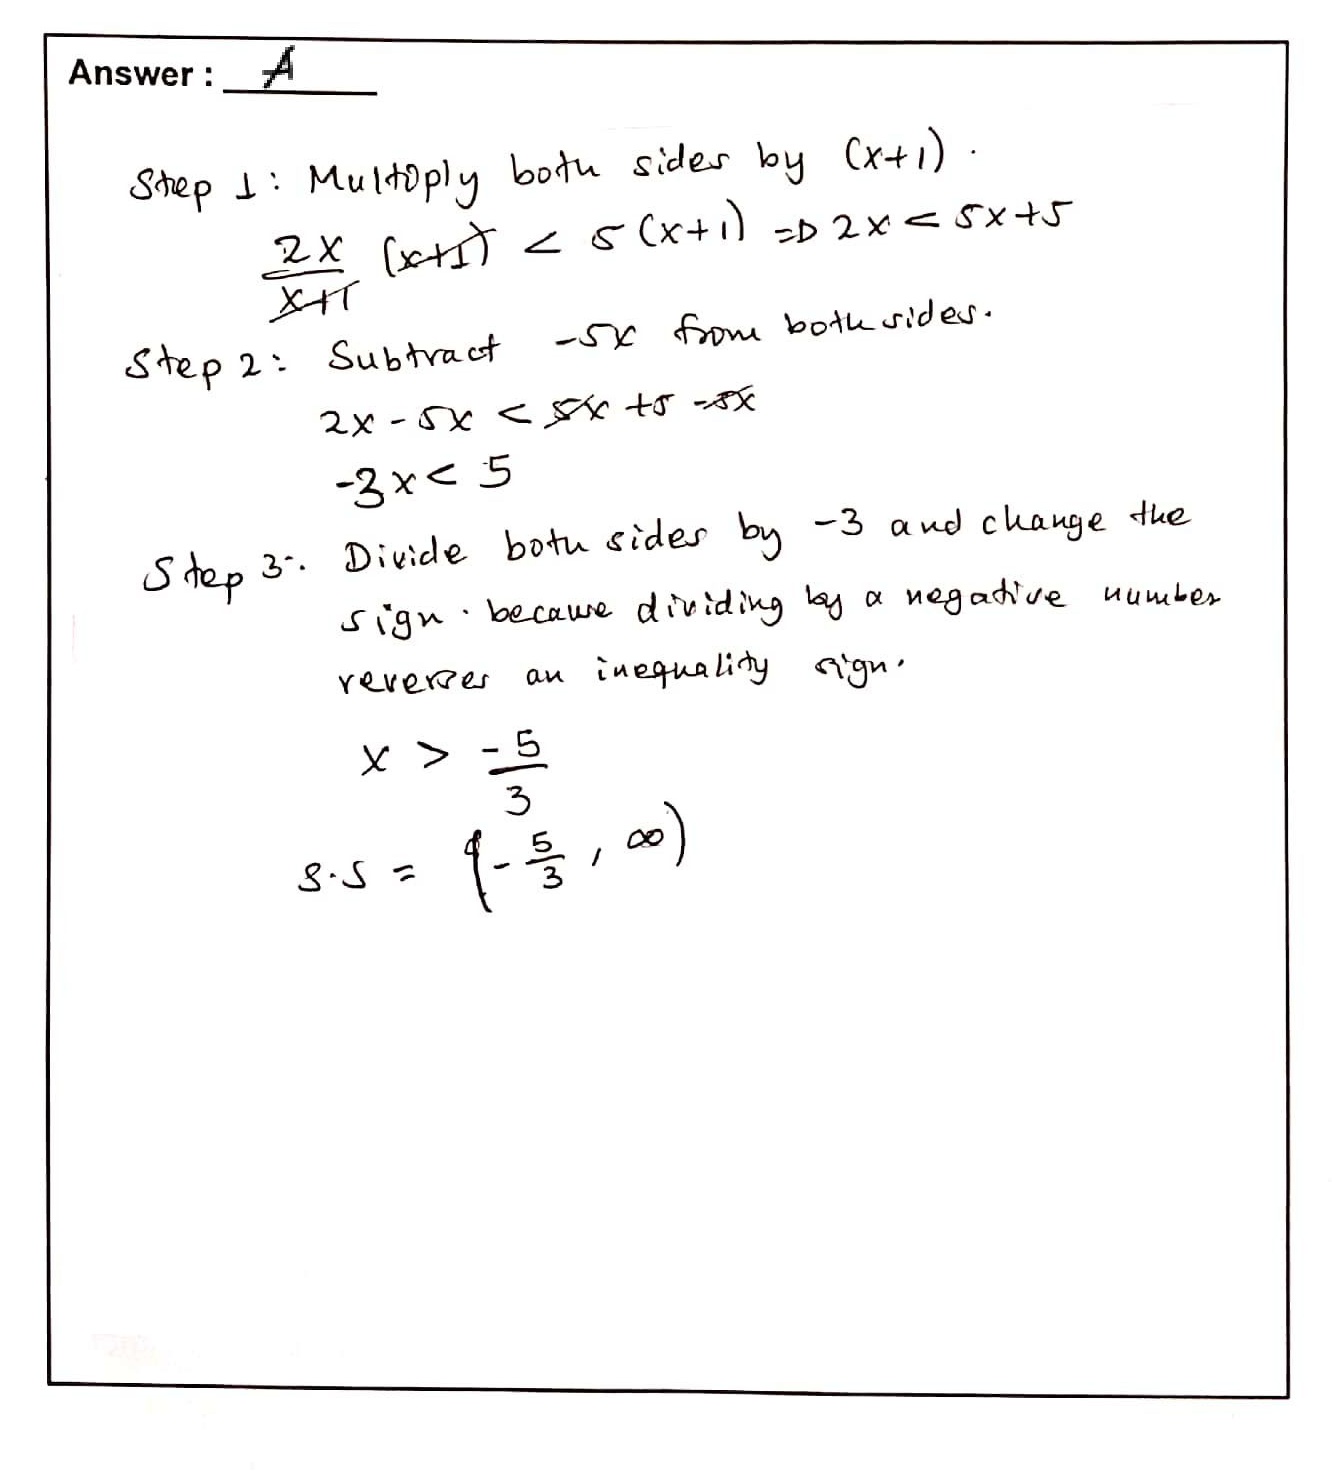 Answer : A
Step 1: Multiply both sides by (x+1).
2x/x+1 (x+1) < 5(x+1) => 2x < 5x+5
Step 2: Subtract -5x from both sides.
2x - 5x < 5x +5 -5x
-3x < 5
Step 3: Divide both sides by -3 and change the
sign. because dividing by a negative number
reverses an inequality sign.
x > -5/3
S.S = (-5/3, ∞)